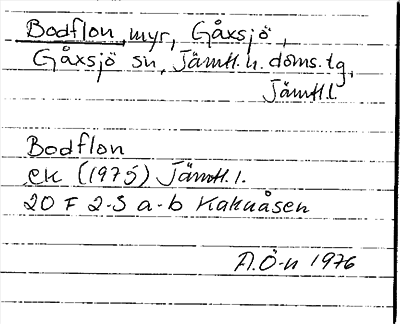 Bodflon, myr, Gåxsjö,
Gåxsjö sn, Jämtl. n. doms. tg,
Jämtl. l.
Bodflon
ek (1975) Jämtl. l.
20 F 2-3 a-b Kaknåsen
A.Ö-n 1976